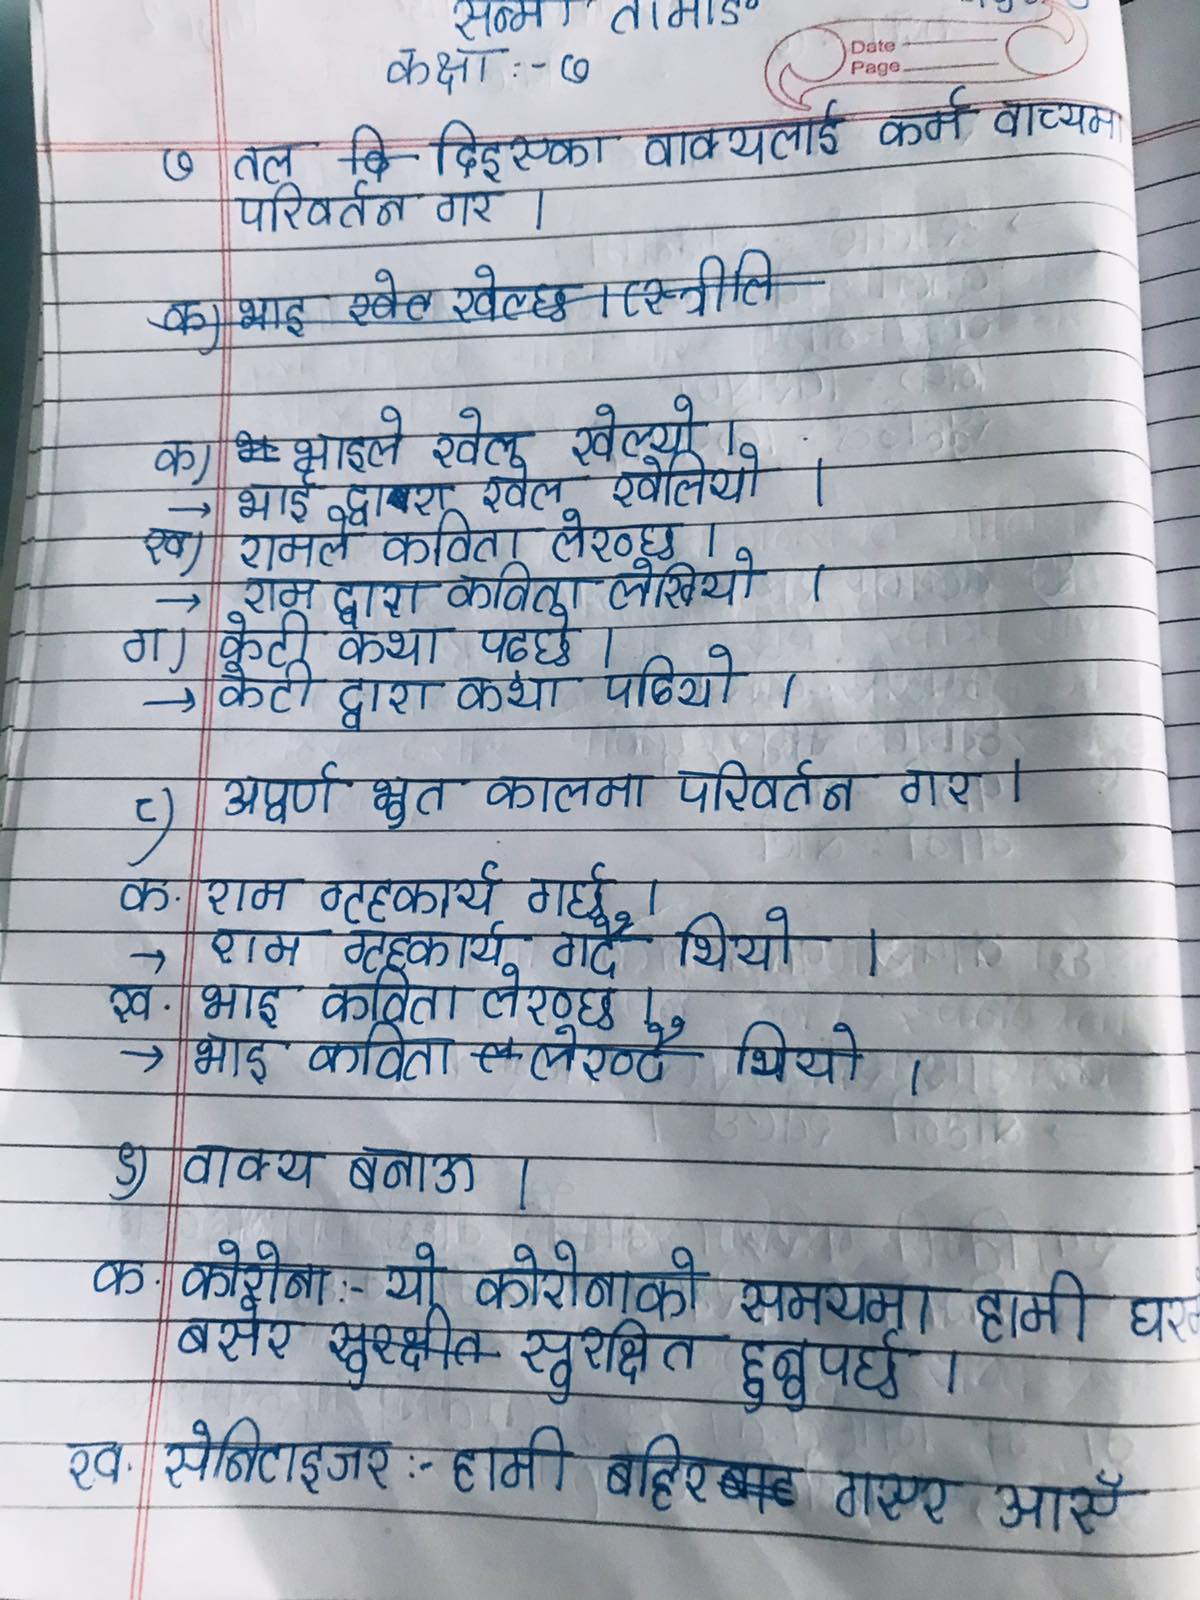 तामाङ
कक्षा :- ७
Date
Page
७ तल दिइएका वाक्यलाई कर्म वाच्यमा
परिवर्तन गर ।
क) भाइ खेल खेल्छ । (स्त्रीलि
क) भाइले खेल खेल्यो ।
→ भाई द्वारा खेल खेलियो ।
ख) रामले कविता लेख्छ ।
→ राम द्वारा कविता लेखियो ।
ग) केटी कथा पढ्छे ।
→ केटी द्वारा कथा पढियो ।
८) अपूर्ण भूत कालमा परिवर्तन गर ।
क. राम गृहकार्य गर्छ ।
→ राम गृहकार्य गर्दै थियो ।
ख. भाइ कविता लेख्छ ।
→ भाइ कविता लेख्दै थियो ।
९) वाक्य बनाऊ ।
क. कोरोना :- यो कोरोनाको समयमा हामी
बसेर सुरक्षीत सुरक्षित हुनुपर्छ ।
ख. सेनिटाइजर :- हामी बहिर गएर आएँ